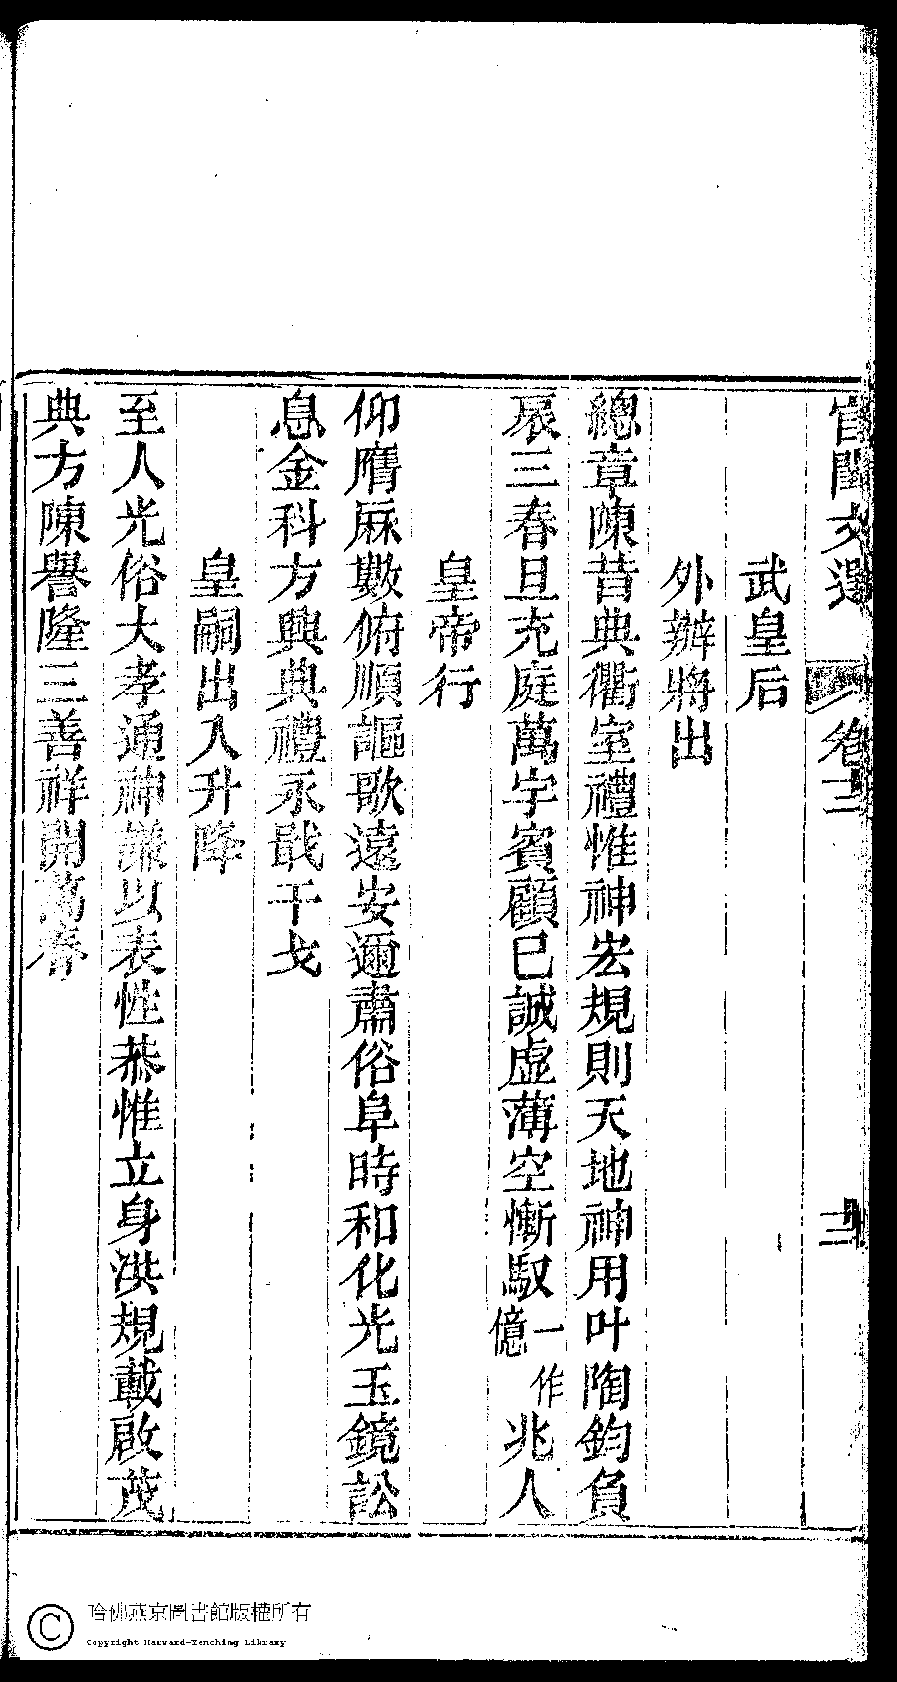 宮閨文選 卷十二 十二
武皇后
外辦將出
總章陳昔典衢室禮惟神宏規則天地神用叶陶鈞負
扆三春旦充庭萬宇賓顧已誠虚薄空慚馭一作億兆人
皇帝行
仰膺厤數俯順謳歌遠安邇肅俗阜時和化光玉鏡訟
息金科方興典禮永戢干戈
皇嗣出入升降
至人光俗大孝通神謙以表性恭惟立身洪規載啟茂
典方陳譽隆三善祥開萬春
哈佛燕京圖書館版權所有
Copyright Harvard-Yenching Library